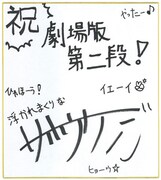 祝
劇場版
第二段!
やったー♪
ひゃほう!
イエーイ
浮かれまくりな
ヒョーウ☆